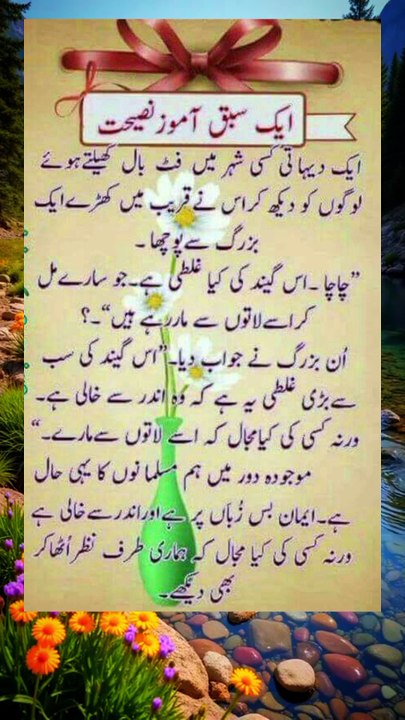 ایک سبق آموز نصیحت
ایک دیہاتی کسی شہر میں فٹ بال کھیلتے ہوئے
لوگوں کو دیکھ کر اس نے قریب میں کھڑے ایک
بزرگ سے پوچھا ۔
”چاچا ۔ اس گیند کی کیا غلطی ہے۔ جو سارے مل
کر اسے لاتوں سے مار رہے ہیں“۔؟
اُن بزرگ نے جواب دیا۔ ”اس گیند کی سب
سے بڑی غلطی یہ ہے کہ وہ اندر سے خالی ہے۔
ورنہ کسی کی کیا مجال کہ اسے لاتوں سے مارے۔“
موجودہ دور میں ہم مسلمانوں کا یہی حال
ہے۔ ایمان بس زُباں پر ہے اور اندر سے خالی ہے
ورنہ کسی کی کیا مجال کہ ہماری طرف نظر اُٹھا کر
بھی دیکھے۔